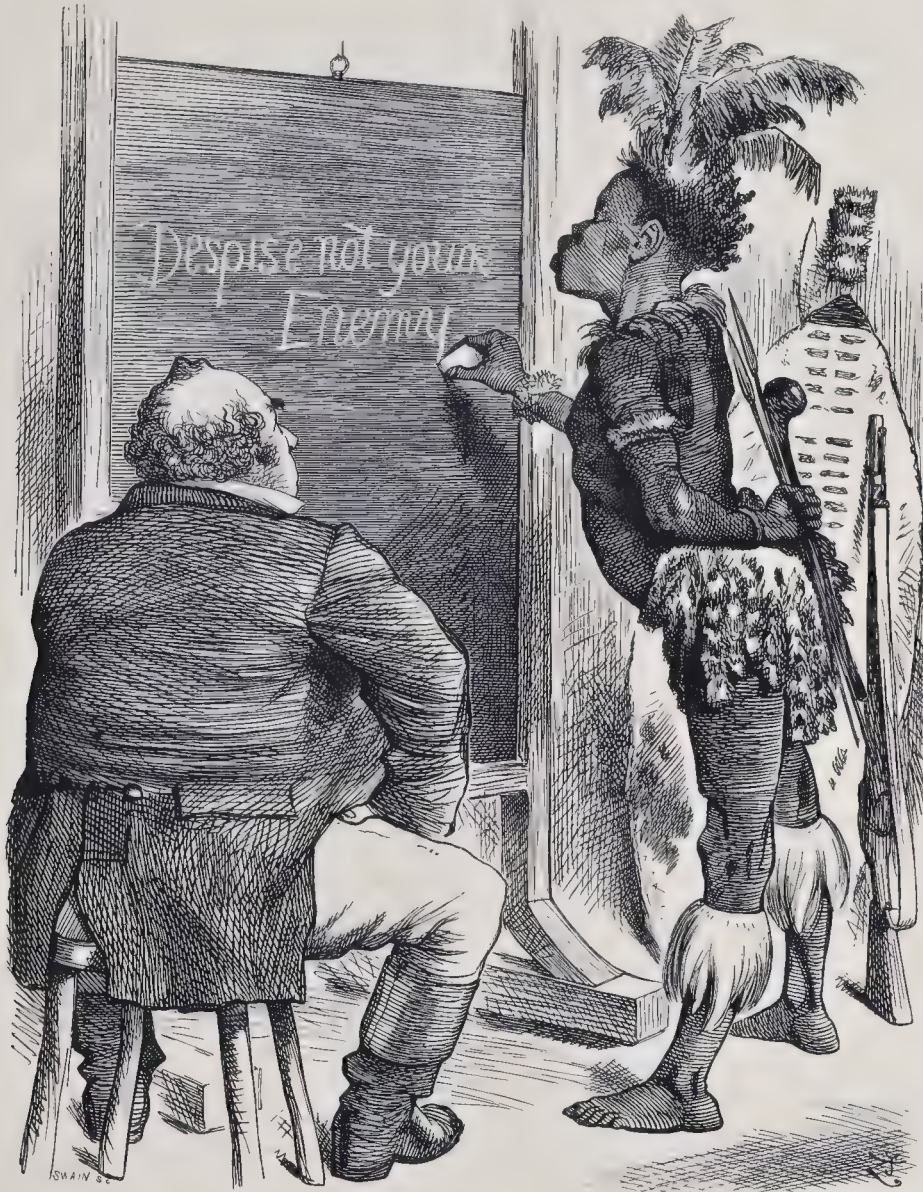 Despise not youre
Enemy
SWAIN SC